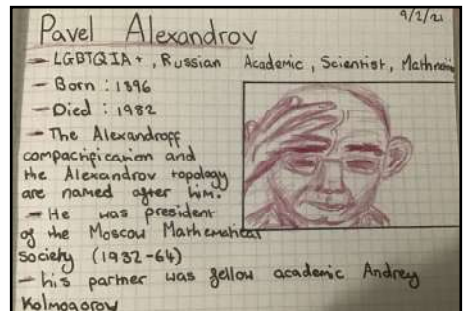 9/2/21
Pavel Alexandrov
- LGBTQIA+, Russian Academic, Scientist,
- Born : 1896
- Died : 1982
- The Alexandroff
compactification and
the Alexandrov topology
are named after him.
- He was president
of the Moscow Mathematical
society (1932-64)
- his partner was fellow academic Andrey
Kolmogorov